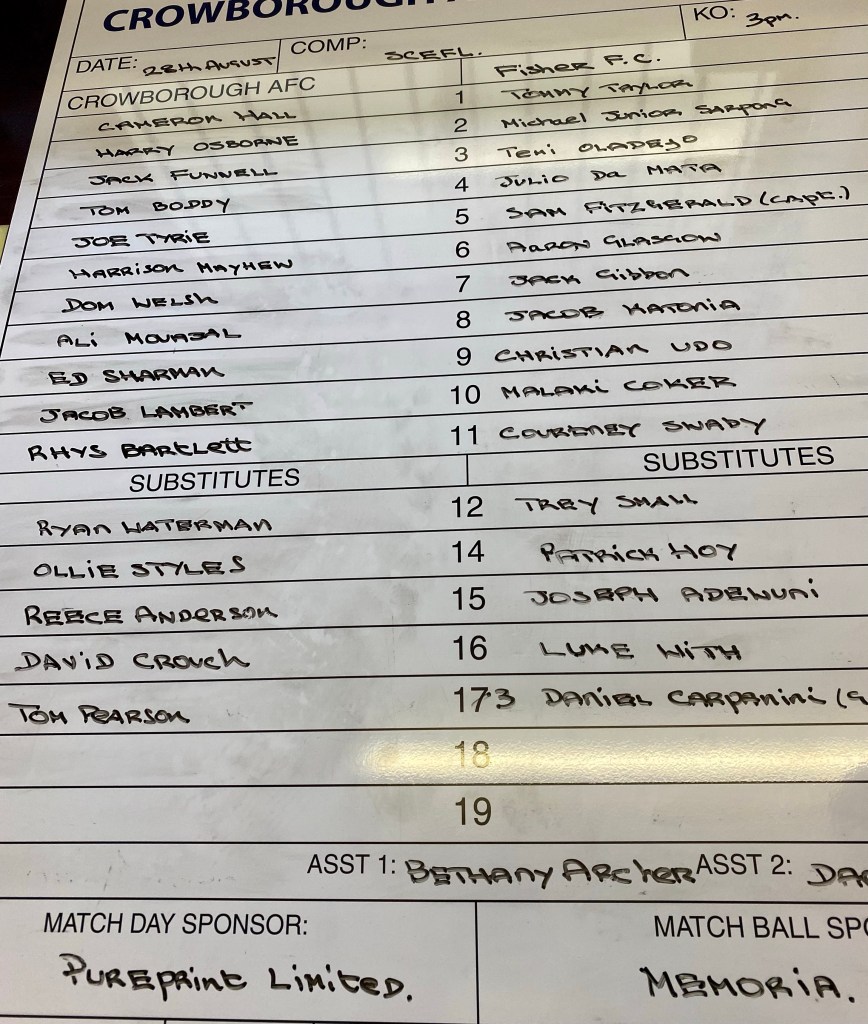 CROWBOROUGH
DATE: 28th AUGUST COMP: SCEFL. KO: 3pm.
CROWBOROUGH AFC Fisher F.C.
CAMERON HALL 1 TOMMY TAYLOR
HARRY OSBORNE 2 Michael Junior Sarpong
JACK FUNNELL 3 Temi OLADEJO
TOM BODDY 4 JULIO Da MATA
JOE TYRIE 5 SAM FITZGERALD (CAPT.)
HARRISON MAYHEW 6 AARON GLASGOW
DOM WELSH 7 JACK Gibbon
ALI 8 JACOB KATONIA
ED SHARMAN 9 CHRISTIAN UDO
JACOB LAMBERT 10 MALAKI COKER
RHYS BARTLETT 11 COURTNEY SWABY
SUBSTITUTES SUBSTITUTES
RYAN WATERMAN 12 TREY SMALL
OLLIE STYLES 14 PATRICK HOY
REECE ANDERSON 15 JOSEPH ADENUNI
DAVID CROUCH 16 LUKE WITH
TOM PEARSON 173 DANIEL CARPANINI (G
18
19
ASST 1: BETHANY ARCHER ASST 2: DA
MATCH DAY SPONSOR: MATCH BALL SPO
PUREPRINT LIMITED. MEMORIA.